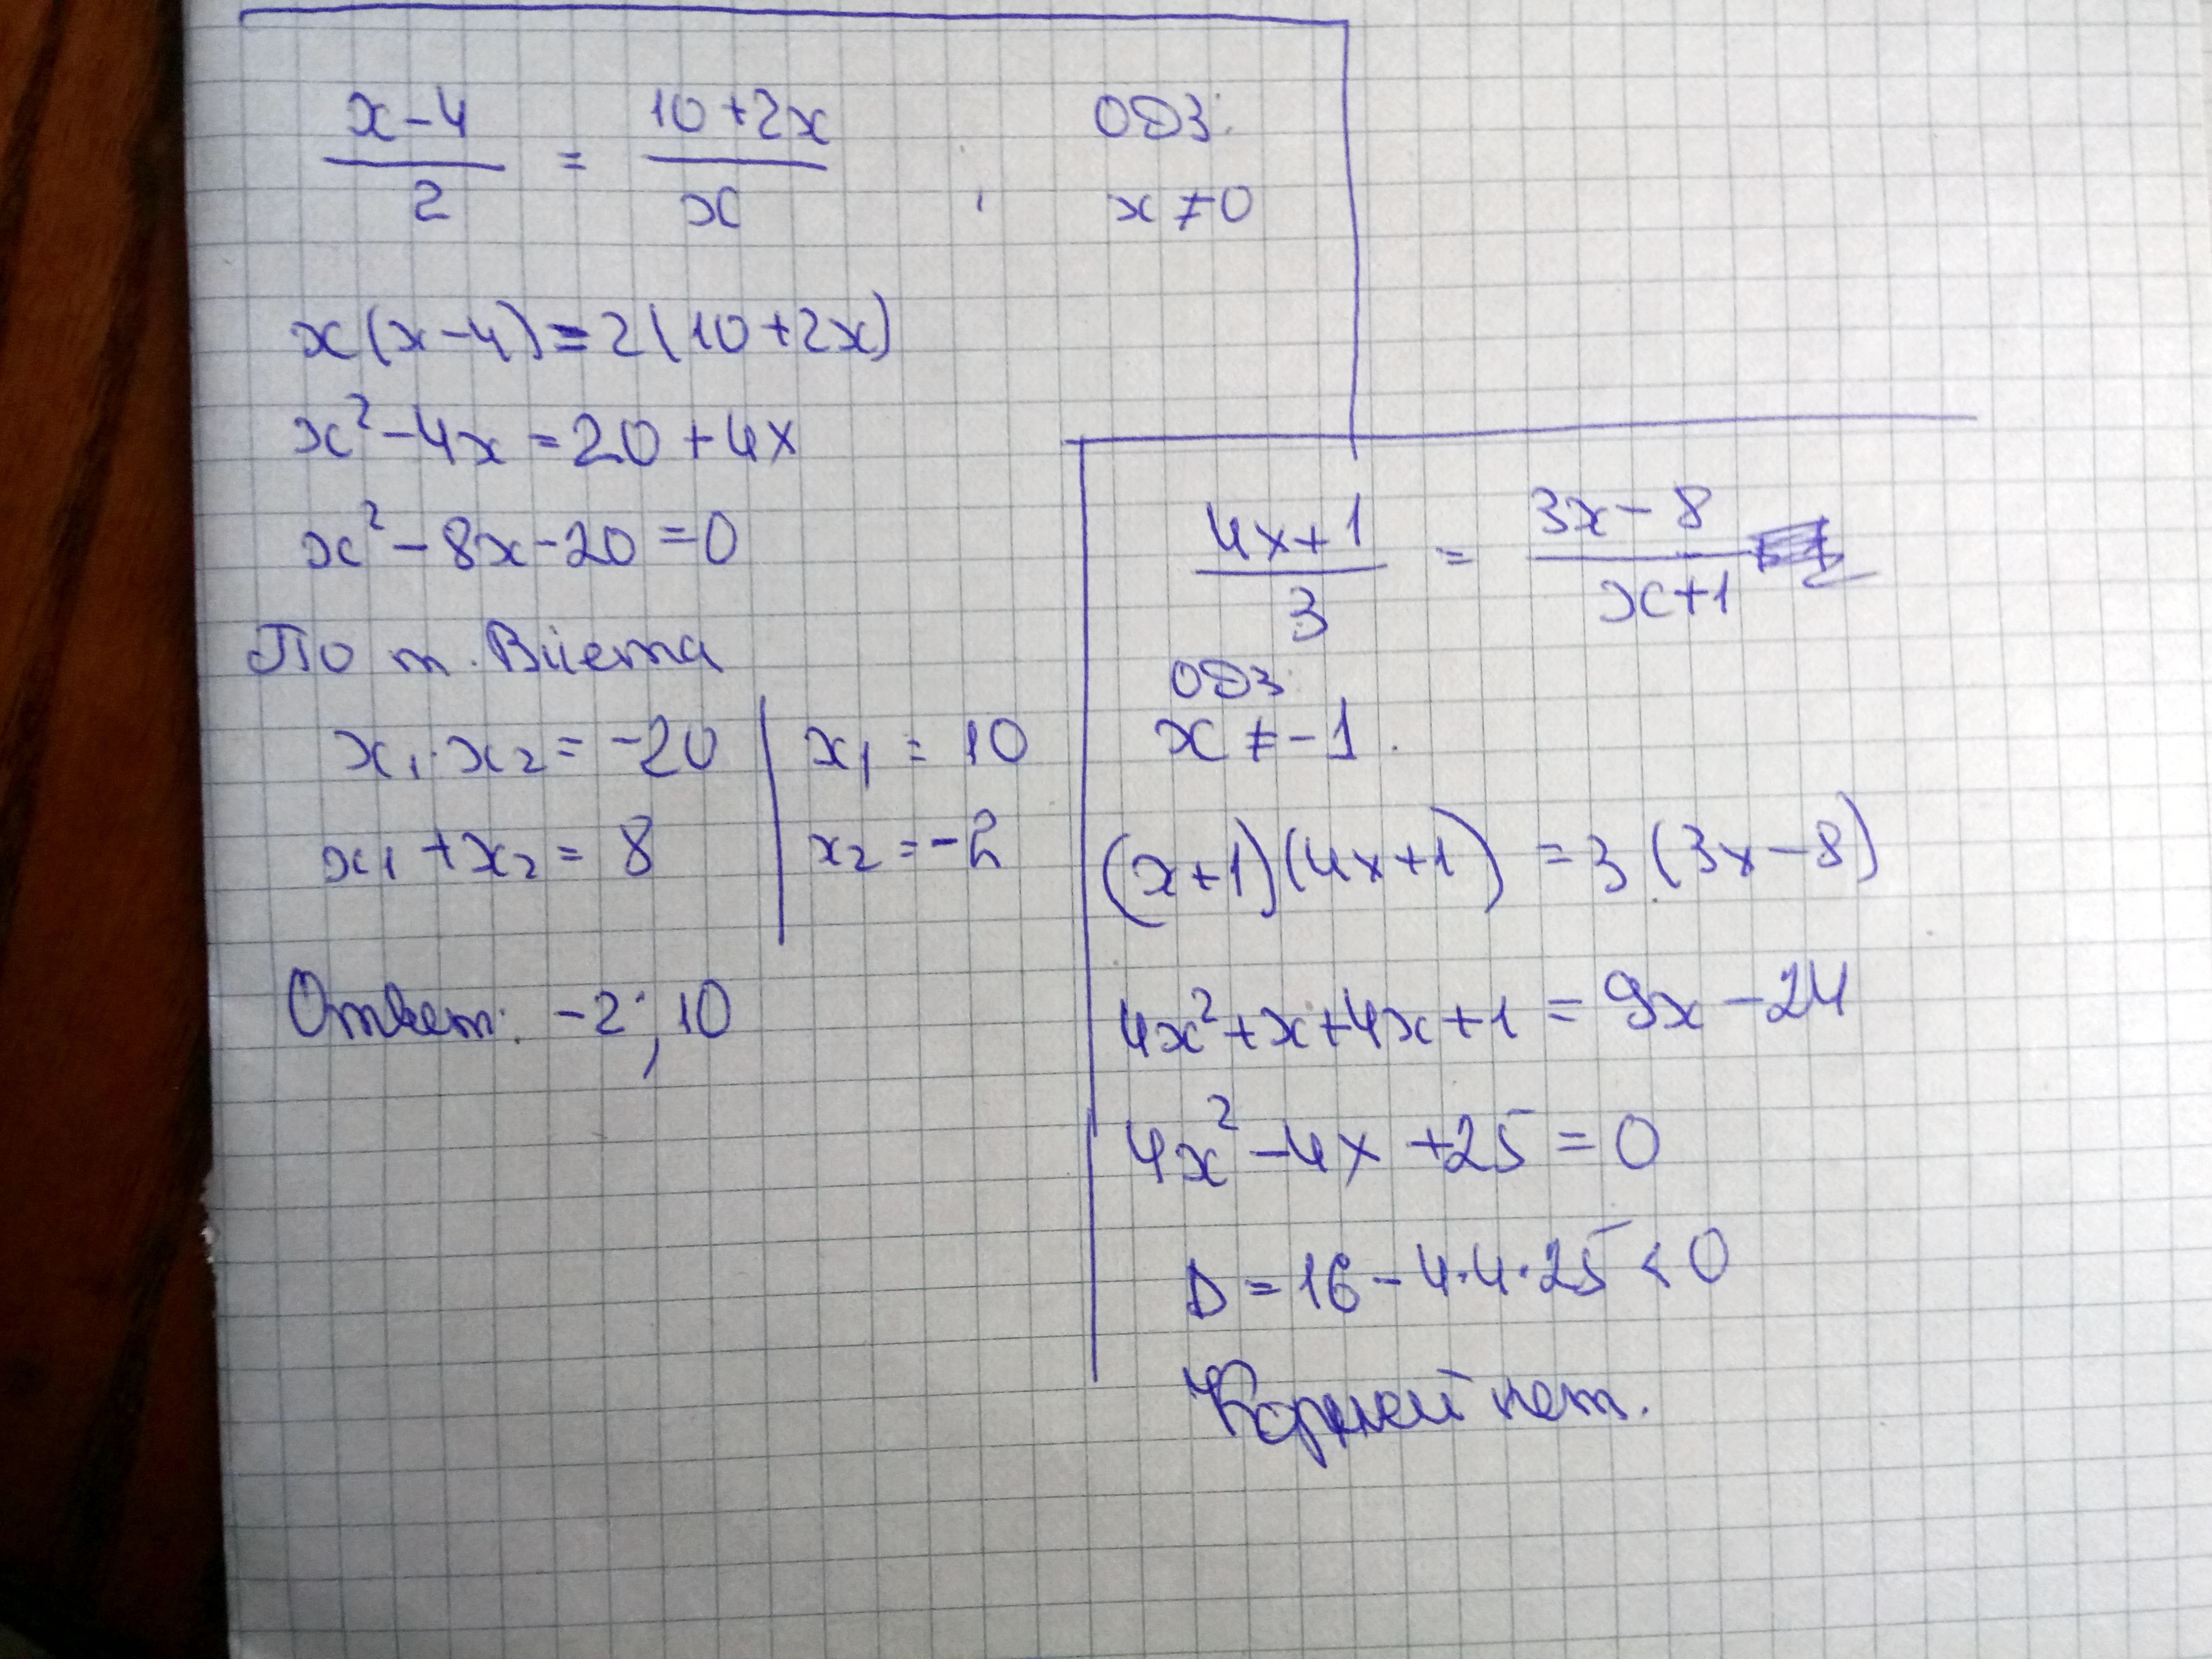 (x-4)/2 = (10+2x)/x , ОДЗ:
x ≠ 0
x(x-4)=2(10+2x)
x²-4x=20+4x
x²-8x-20=0
По т. Виета
x₁·x₂=-20 | x₁=10
x₁+x₂=8 | x₂=-2
Ответ: -2; 10
(4x+1)/3 = (3x-8)/(x+1)
ОДЗ
x ≠ -1.
(x+1)(4x+1)=3(3x-8)
4x²+x+4x+1=9x-24
4x²-4x+25=0
D=16-4·4·25<0
Корней нет.